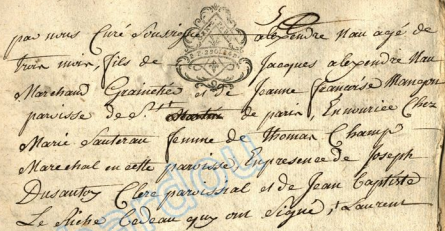 par nous Curé Soussigné alexendre Nau agé de
trois mois, fils de Jacques alexendre Nau
Marchand Grainetier et de Jeanne françoise Mangon
paroisse de St. de paris, En nourice Chez
Marie Sautereau femme de Thomas Champ
Marechal en cette paroisse, En presence de Joseph
Dusautoy Clerc paroissial et de Jean baptiste
Le Riche bedeau quy ont signé, St Laurent